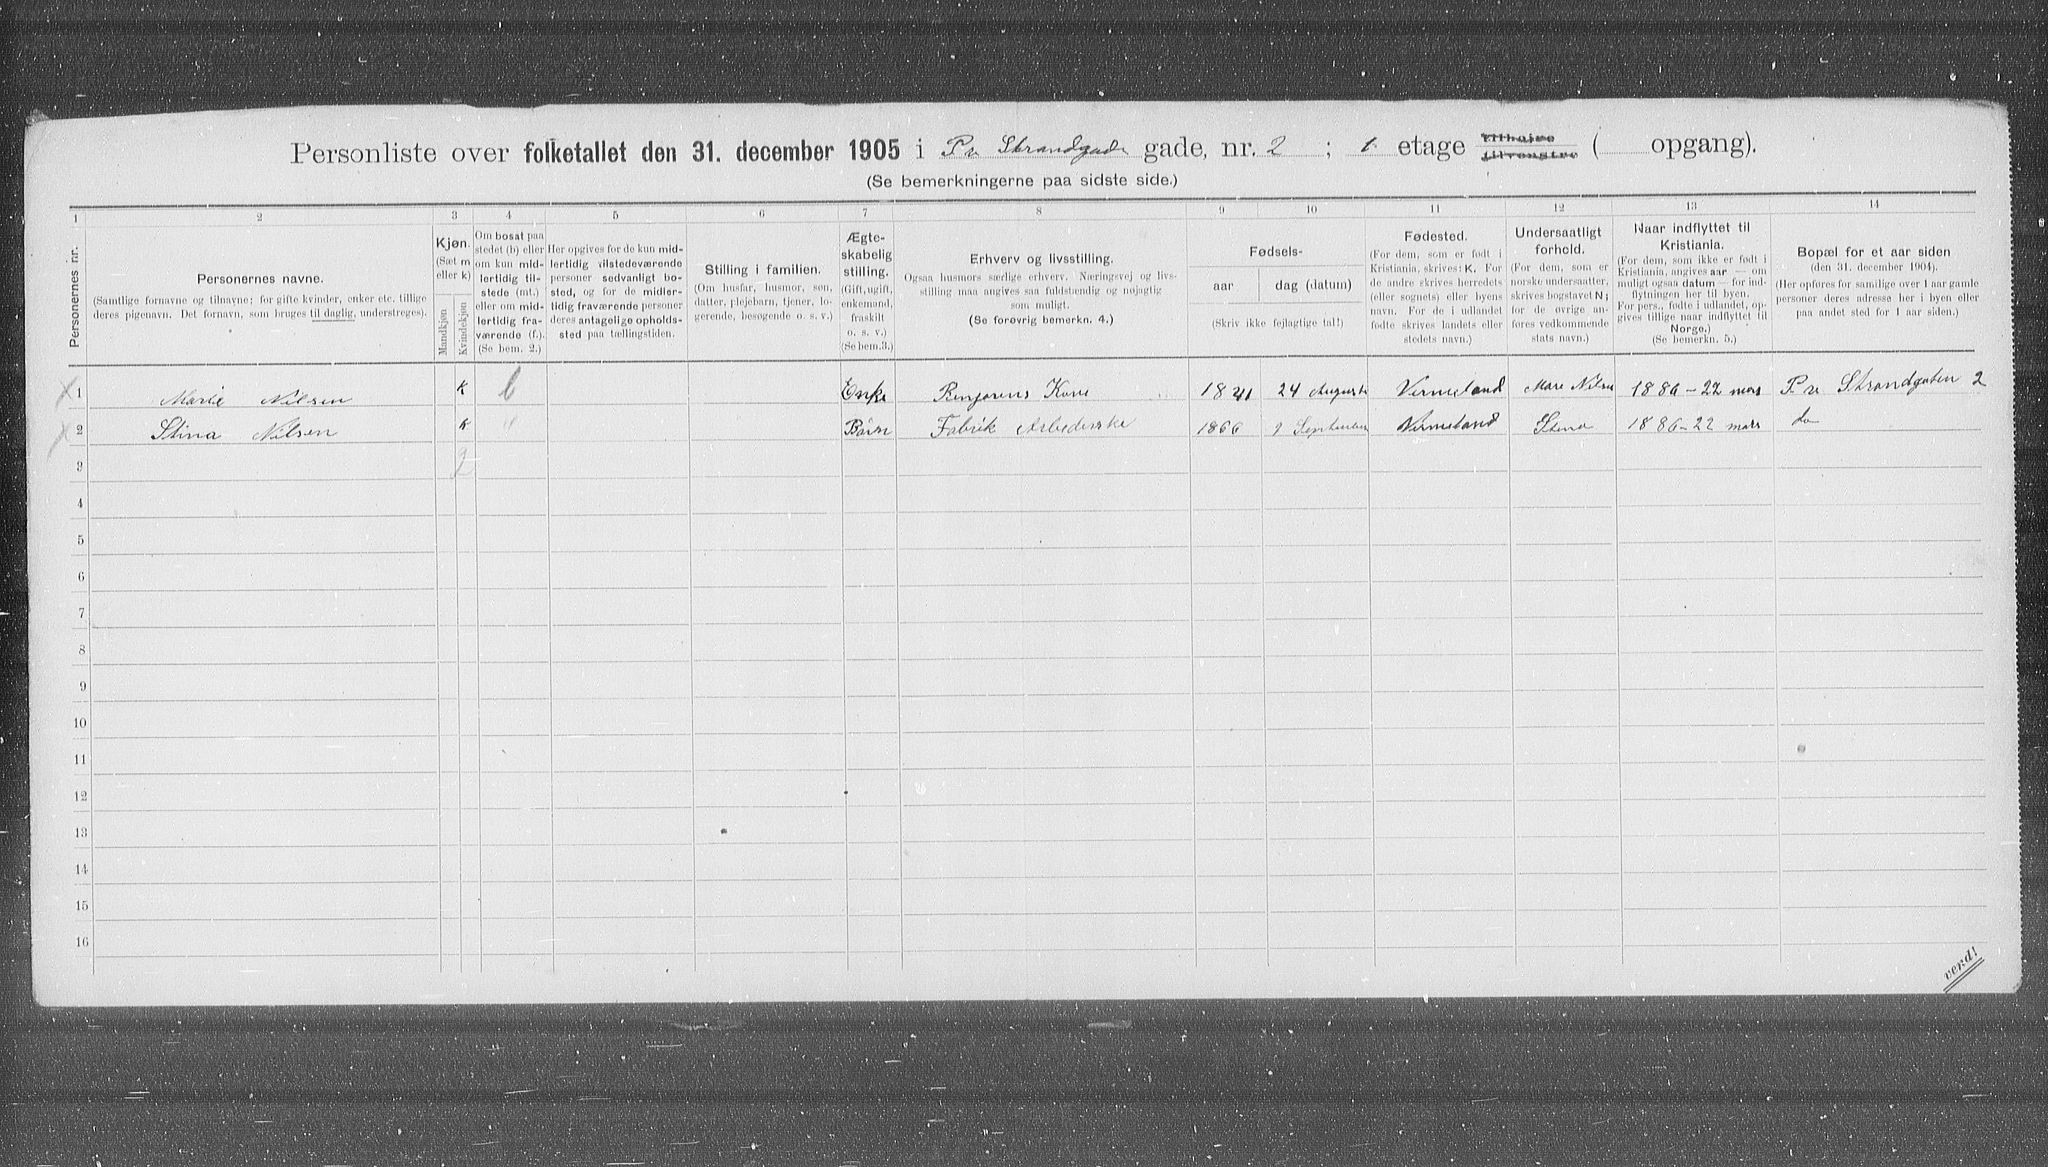 Personliste over folketallet den 31. december 1905 i Pr Strandgade gade, nr. 2 ; 1. etage tilhøire tilvenstre ( opgang).
(Se bemerkningerne paa sidste side.)
1 2 3 4 5 6 7 8 9 10 11 12 13 14
Personernes nr.
Personernes navne.
(Samtlige fornavne og tilnavne; for gifte kvinder, enker etc. tillige
deres pigenavn. Det fornavn, som bruges til daglig, understreges).
Kjøn.
(Sæt m
eller k)
Mandkjøn
Kvindekjøn
Om bosat paa
stedet (b) eller
om kun mid-
lertidig til-
stede (mt.)
eller om mid-
lertidig fra-
værende (f.).
(Se bem. 2.)
Her opgives for de kun mid-
lertidig tilstedeværende
personer sedvanligt bo-
sted, og for de midler-
tidig fraværende personer
deres antagelige opholds-
sted paa tællingstiden.
Stilling i familien.
(Om husfar, husmor, søn,
datter, plejebarn, tjener, lo-
gerende, besøgende o. s. v.)
Ægte-
skabelig
stilling.
(Gift, ugift,
enkemand,
fraskilt
o. s. v.)
(Se bem.3.)
Erhverv og livsstilling.
Ogsaa husmors særlige erhverv. Næringsvej og livs-
stilling maa angives saa fuldstændig og nøjagtig
som muligt.
(Se forøvrig bemerkn. 4.)
Fødsels-
aar dag (datum)
(Skriv ikke fejlagtige tal!)
Fødested.
(For dem, som er født i
Kristiania, skrives: K. For
de andre skrives herredets
(eller sognets) eller byens
navn. For de i udlandet
fødte skrives landets eller
stedets navn.)
Undersaatligt
forhold.
(For dem, som er
norske undersaatter,
skrives bogstavet N;
for de øvrige an-
føres vedkommende
stats navn.)
Naar indflyttet til
Kristiania.
(For dem, som ikke er født i
Kristiania, angives aar — om
muligt ogsaa datum — for ind-
flytningen her til byen.
For pers., fødte i udlandet, op-
gives tillige naar indflyttet til
Norge.)
(Se bemerkn. 5.)
Bopæl for et aar siden
(den 31. december 1904).
(Her opføres for samilige over 1 aar gamle
personer deres adresse her i byen eller
paa andet sted for 1 aar siden.)
1 Marie Nilsen K b Enke Rengørens Kone 1841 24 August Vermeland Mare Nilsen 1886-22 mars Pr Strandgaten 2
2 Stina Nilsen K " Børn Fabrik Arbederske 1866 9 September Vermeland Stina 1886-22 mars do
3 2
4
5
6
7
8
9
10
11
12
13
14
15
16
vend!